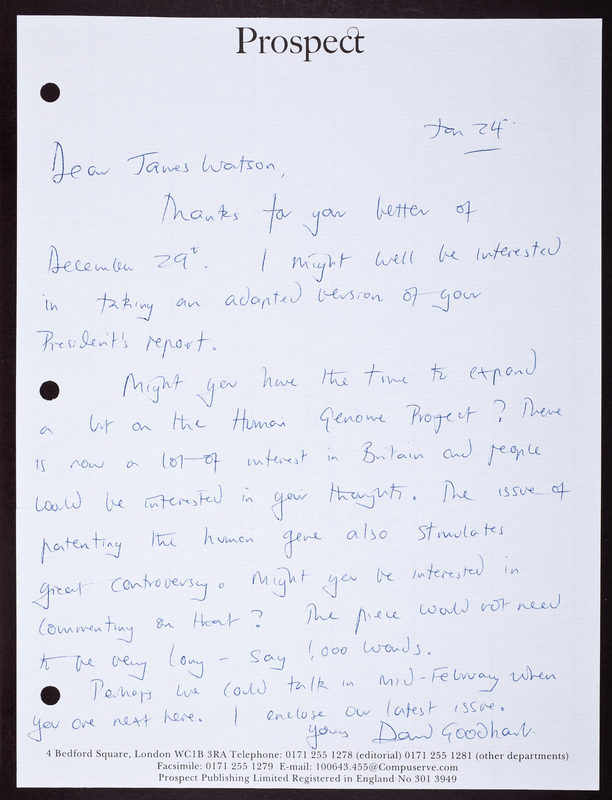 Prospect
Jan 24
Dear James Watson,
Thanks for your letter of
December 29t. I might well be interested
in taking an adapted version of your
President's report.
Might you have the time to expand
a bit on the Human Genome Project? There
is now a lot of interest in Britain and people
would be interested in your thoughts. The issue of
patenting the human gene also stimulates
great controversy. Might you be interested in
commenting on that? The piece would not need
to be very long - say 1,000 words.
Perhaps we could talk in mid-February when
you are next here. I enclose our latest issue.
Yours David Goodhart.
4 Bedford Square, London WC1B 3RA Telephone: 0171 255 1278 (editorial) 0171 255 1281 (other departments)
Facsimile: 0171 255 1279 E-mail: 100643.455@Compuserve.com
Prospect Publishing Limited Registered in England No 301 3949